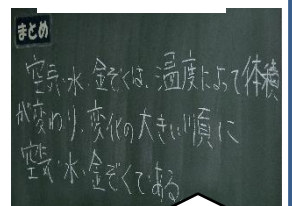 まとめ
空気・水・金ぞくは、温度によって体積
が変わり、変化の大きい順に
空気・水・金ぞくである